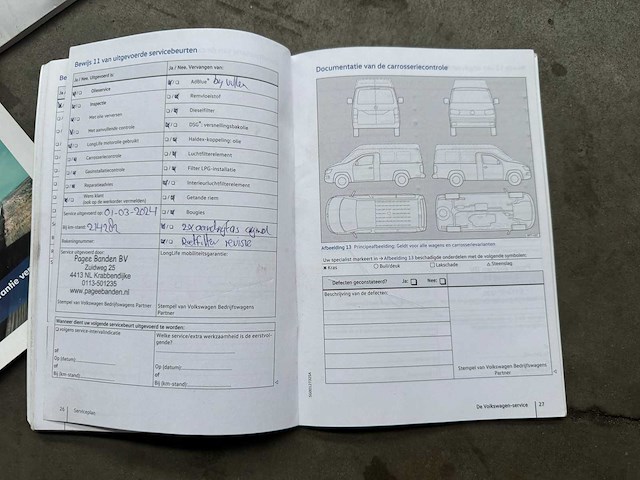 Bewijs 11 van uitgevoerde servicebeurten
Ja / Nee. Uitgevoerd is:
Olieservice
Inspectie
Met olie verversen
Met aanvullende controle
LongLife motorolie gebruikt
Carrosseriecontrole
Gasinstallatiecontrole
Reparatieadvies
Wens klant
(ook op de werkorder vermelden)
Service uitgevoerd op: 01-03-2024
Bij km-stand:
Rekeningnummer:
Service uitgevoerd door:
Pagee Banden BV
Zuidweg 25
4413 NL Krabbendijke
0113-501235
www.pageebanden.nl
Stempel van Volkswagen Bedrijfswagens
Partner
Ja / Nee. Vervangen van:
AdBlue®
Remvloeistof
Dieselfilter
DSG®-versnellingsbakolie
Haldex-koppeling: olie
Luchtfilterelement
Filter LPG-installatie
Interieurluchtfilterelement
Getande riem
Bougies
LongLife mobiliteitsgarantie:
Stempel van Volkswagen Bedrijfswagens
Partner
Wanneer dient uw volgende servicebeurt uitgevoerd te worden:
volgens service-intervalindicatie
of
Op (datum):
of
Bij (km-stand):
Welke service/extra werkzaamheid is de eerstvol-
gende?
Op (datum):
of
Bij (km-stand):
26 Serviceplan
Documentatie van de carrosseriecontrole
Afbeelding 13 Principeafbeelding: Geldt voor alle wagens en carrosserievarianten
Uw specialist markeert in → Afbeelding 13 beschadigde onderdelen met de volgende symbolen:
Kras
Buil/deuk
Lakschade
Steenslag
Defecten geconstateerd?
Ja:
Nee:
Beschrijving van de defecten:
Stempel van Volkswagen Bedrijfswagens
Partner
De Volkswagen-service 27